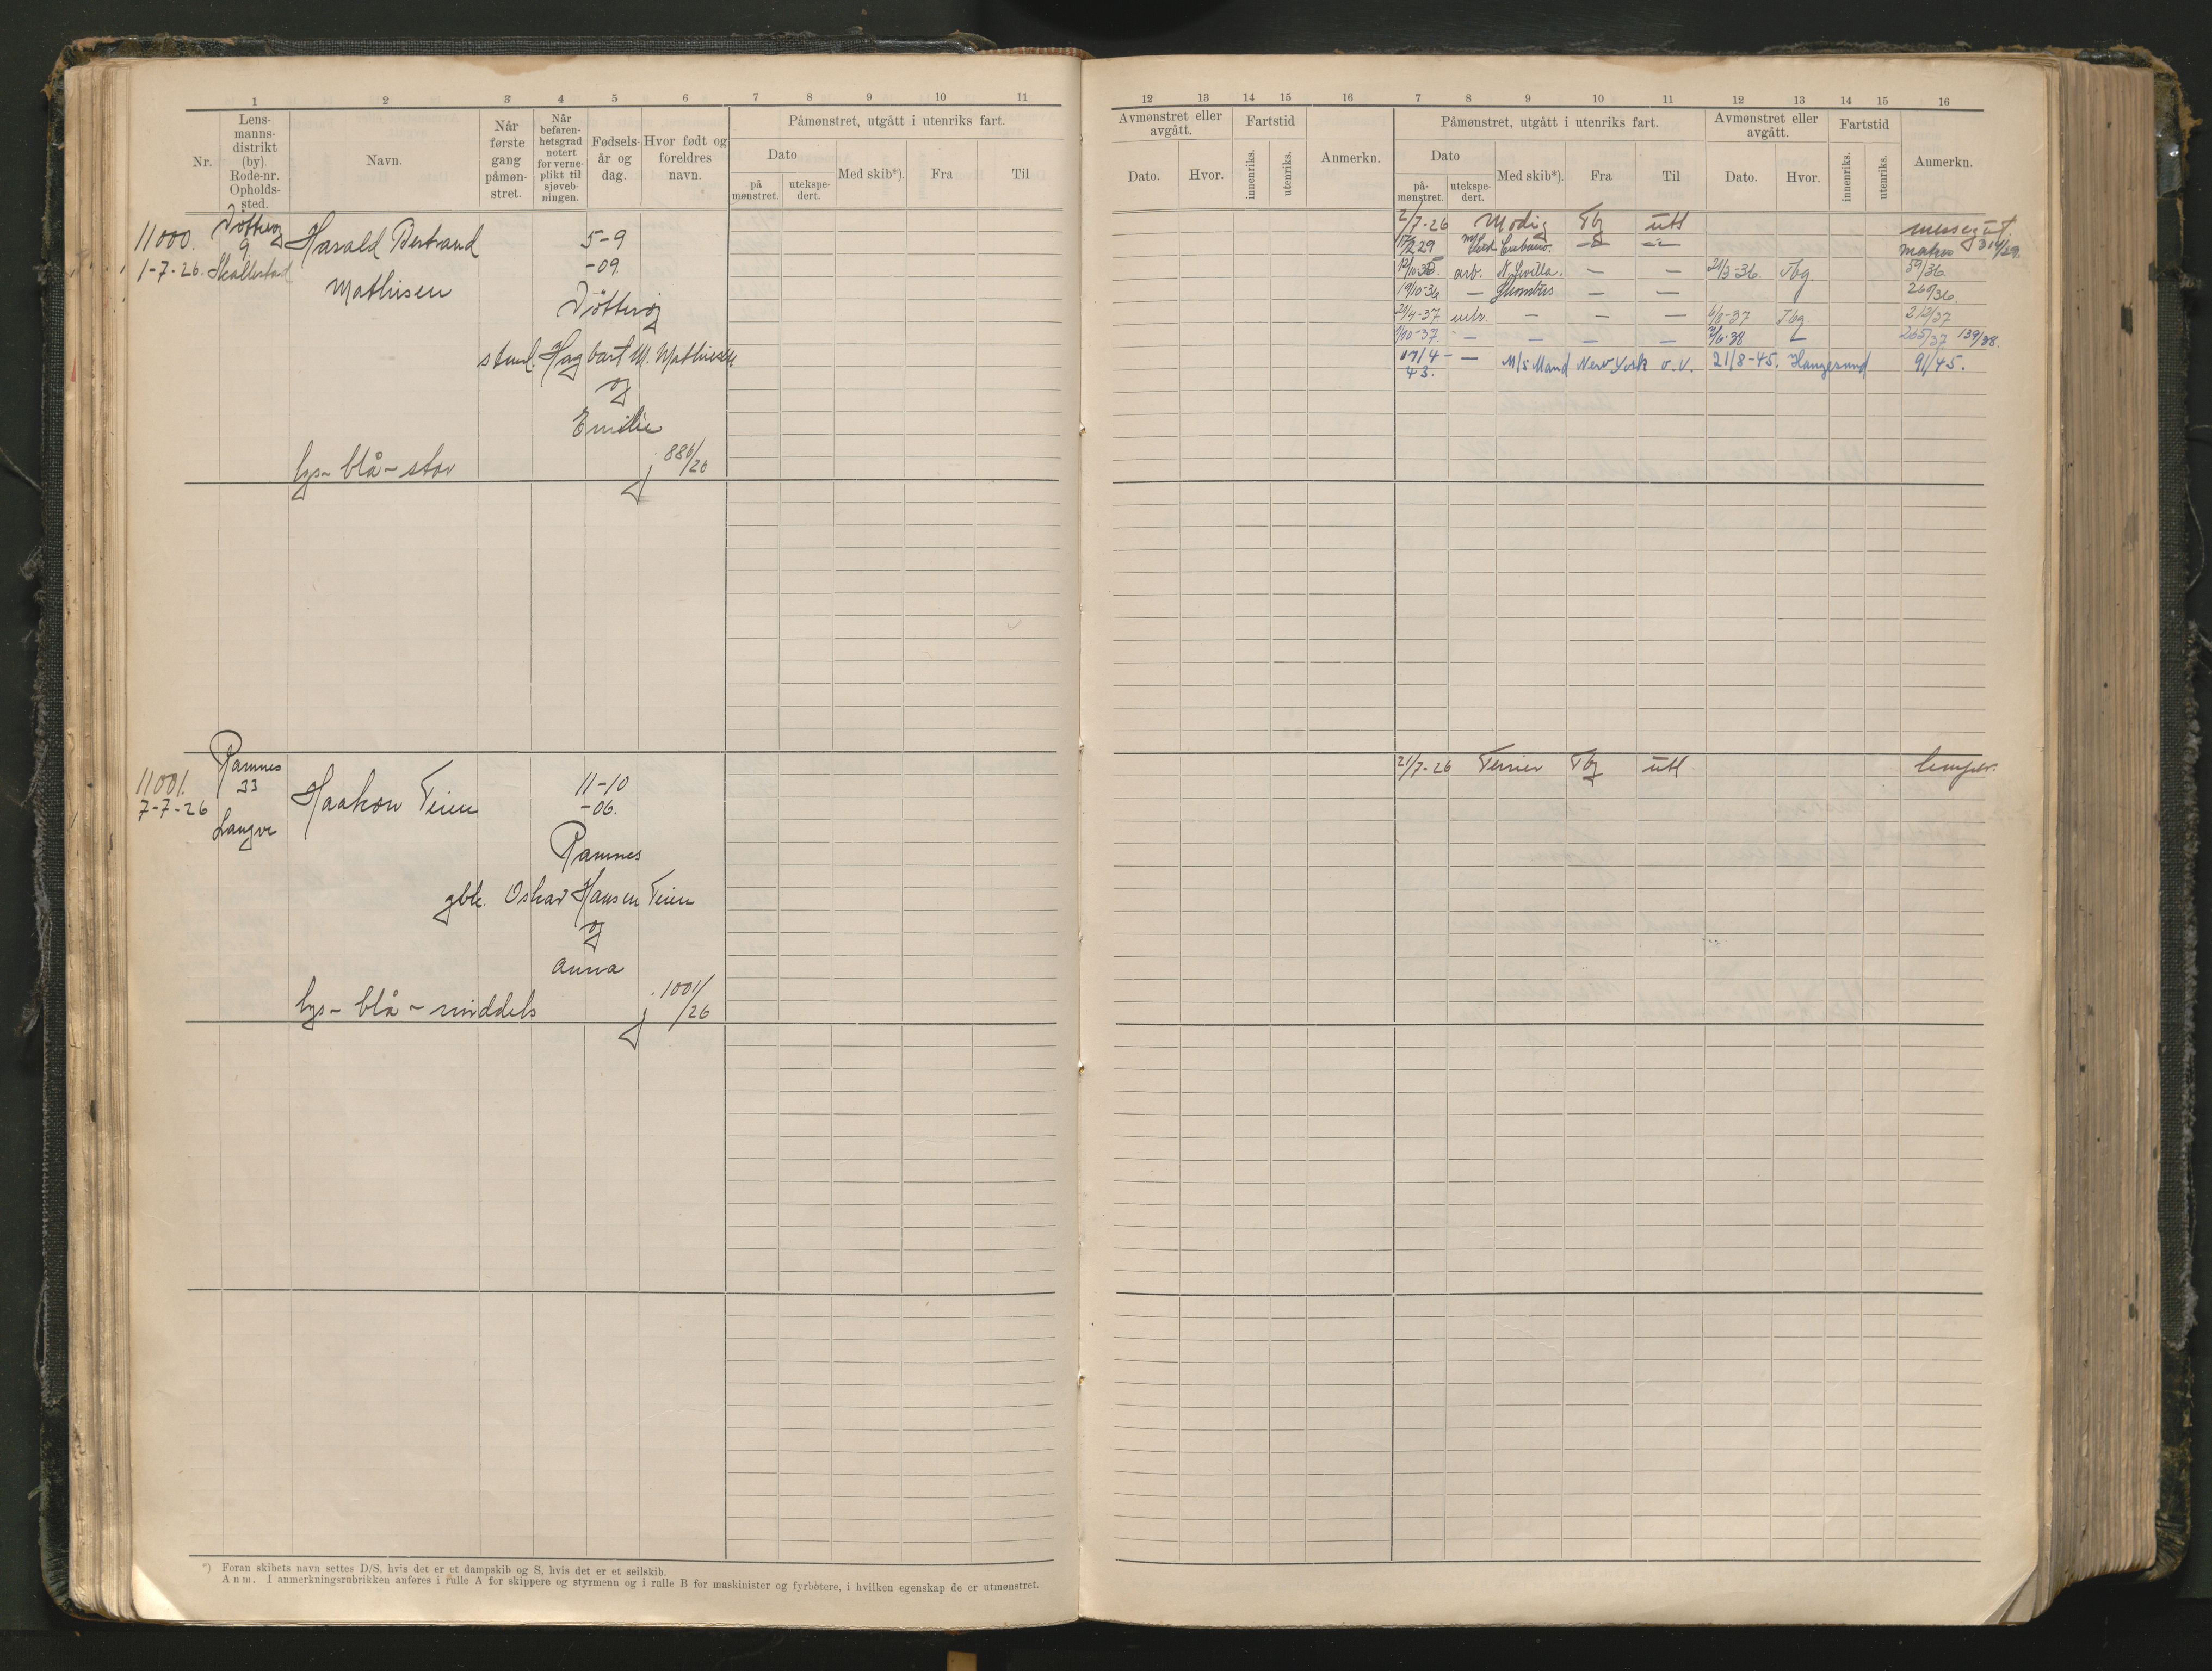 1 2 3 4 5 6 7 8 9 10 11
Nr.
Lens-
manns-
distrikt
(by).
Rode-nr.
Opholds-
sted.
Navn.
Når
første
gang
påmøn-
stret.
Når
befaren-
hetsgrad
notert
for verne-
plikt til
sjøveb-
ningen.
Fødsels-
år og
dag.
Hvor født og
foreldres
navn.
Påmønstret, utgått i utenriks fart.
Dato
på
mønstret.
utekspe-
dert.
Med skib*).
Fra
Til
11000.
1-7-26.
Nøtterøy
9
Skallestad
Harald Bertrand
Mathisen
5-9
-09.
Nøtterøy
Hagbart M. Mathisen
og
Emilie
lys- blå- stor
j. 886/26
11001.
7-7-26
Ramnes
33
Haakon Teien
11-10
-06.
Ramnes
gbk. Oskar Hansen Teien
og
Anna
lys- blå- middels
j. 1001/26
*) Foran skibets navn settes D/S, hvis det er et dampskib og S, hvis det er et seilskib.
Anm. I anmerkningsrubrikken anføres i rulle A for skippere og styrmenn og i rulle B for maskinister og fyrbøtere, i hvilken egenskap de er utmønstret.
12 13 14 15 16 7 8 9 10 11 12 13 14 15 16
Avmønstret eller
avgått.
Dato.
Hvor.
Fartstid
innenriks.
utenriks.
Anmerkn.
Påmønstret, utgått i utenriks fart.
Dato
på-
mønstret.
utekspe-
dert.
Med skib*).
Fra
Til
Avmønstret eller
avgått.
Dato.
Hvor.
Fartstid
innenriks.
utenriks.
Anmerkn.
2/7-26 Modig Tbg utl messegut
229 matros
arb. N. Sevilla. — — 21/3-36 Tbg 59/36.
19/10-36 — — — 260/36.
21/4-37 — — — 6/8-37 Tbg 212/37
1/10-37. — — — — 265/37 139/38.
43. — M/S Mand New York o. V. 21/8-45. Haugesund 91/45.
21/7-26 Terrier Tbg utl lemper.